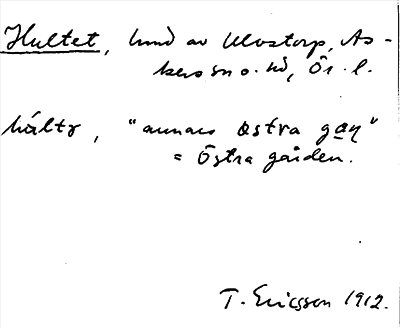 Hultet, hmd av Ulvstorp, As-
kers sn o. hd, Ör. l.
hált𝑟, "annars östra gan̨"
= Östra gården.
T. Ericsson 1912.